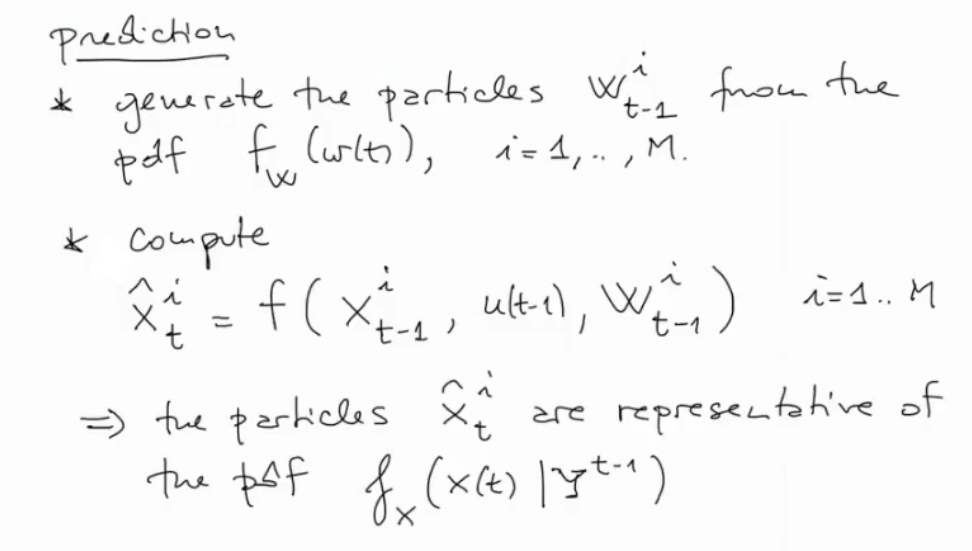 prediction
* generate the particles w^i_{t-1} from the
pdf f_w (w(t)), i=1,..,M.
* compute
x̂^i_t = f( x^i_{t-1}, u(t-1), w^i_{t-1} ) i=1..M
⇒ the particles x̂^i_t are representative of
the pdf f_x (x(t) | Y^{t-1})